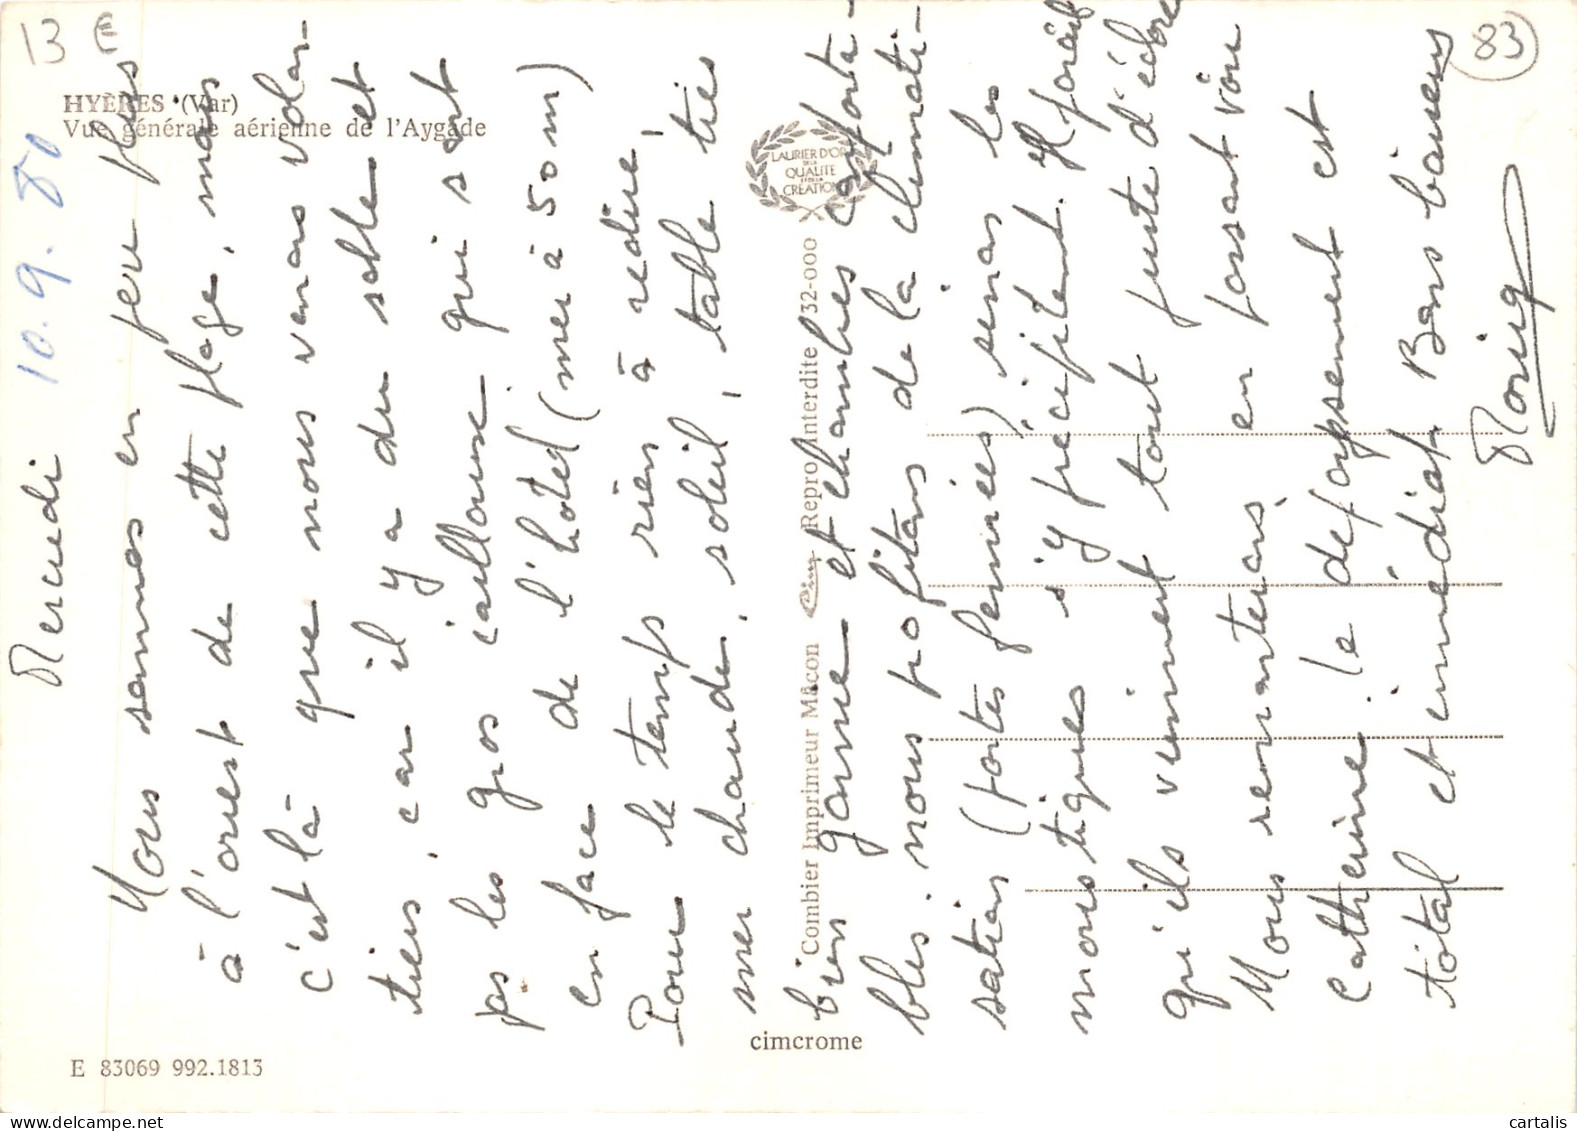 13 €
83
HYÈRES (Var)
Vue générale aérienne de l'Aygade
10.9.80
Mercredi
Nous sommes en peu plus
à l'ouest de cette plage, mais
c'est là que nous venons volon-
tiers, car il y a du sable et
pas les gros cailloux qui sont
en face de l'hôtel (mer à 50 m)
Pour le temps rien à redire,
mer chaude, soleil, table très
bien garnie et chambres conforta-
bles. nous profitons de la climati-
sation (portes fermées) sinon les
moustiques s'y précipitent. Il paraît
qu'ils viennent tout juste d'éclore
Nous remontons en passant voir
Catherine. Le dépaysement est
total et immédiat. Bons baisers
LAURIER D'OR
DE LA
QUALITÉ
ET DE LA
CRÉATION
Combier Imprimeur Mâcon Cim Repro Interdite 32-000
cimcrome
E 83069 992.1813
cartalis